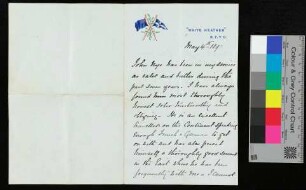 "WHITE HEATHER"
R.Y.S.
May 4th 189
John Vigo has been in my service
as valet and butler during the
past seven years. I have always
found him most thoroughly
honest sober trustworthy and
obliging. He is an excellent
traveller on the Continent speaking
enough French & German to get
on with and has also proved
himself a thoroughly good servant
in the East where he has been
frequently with me &